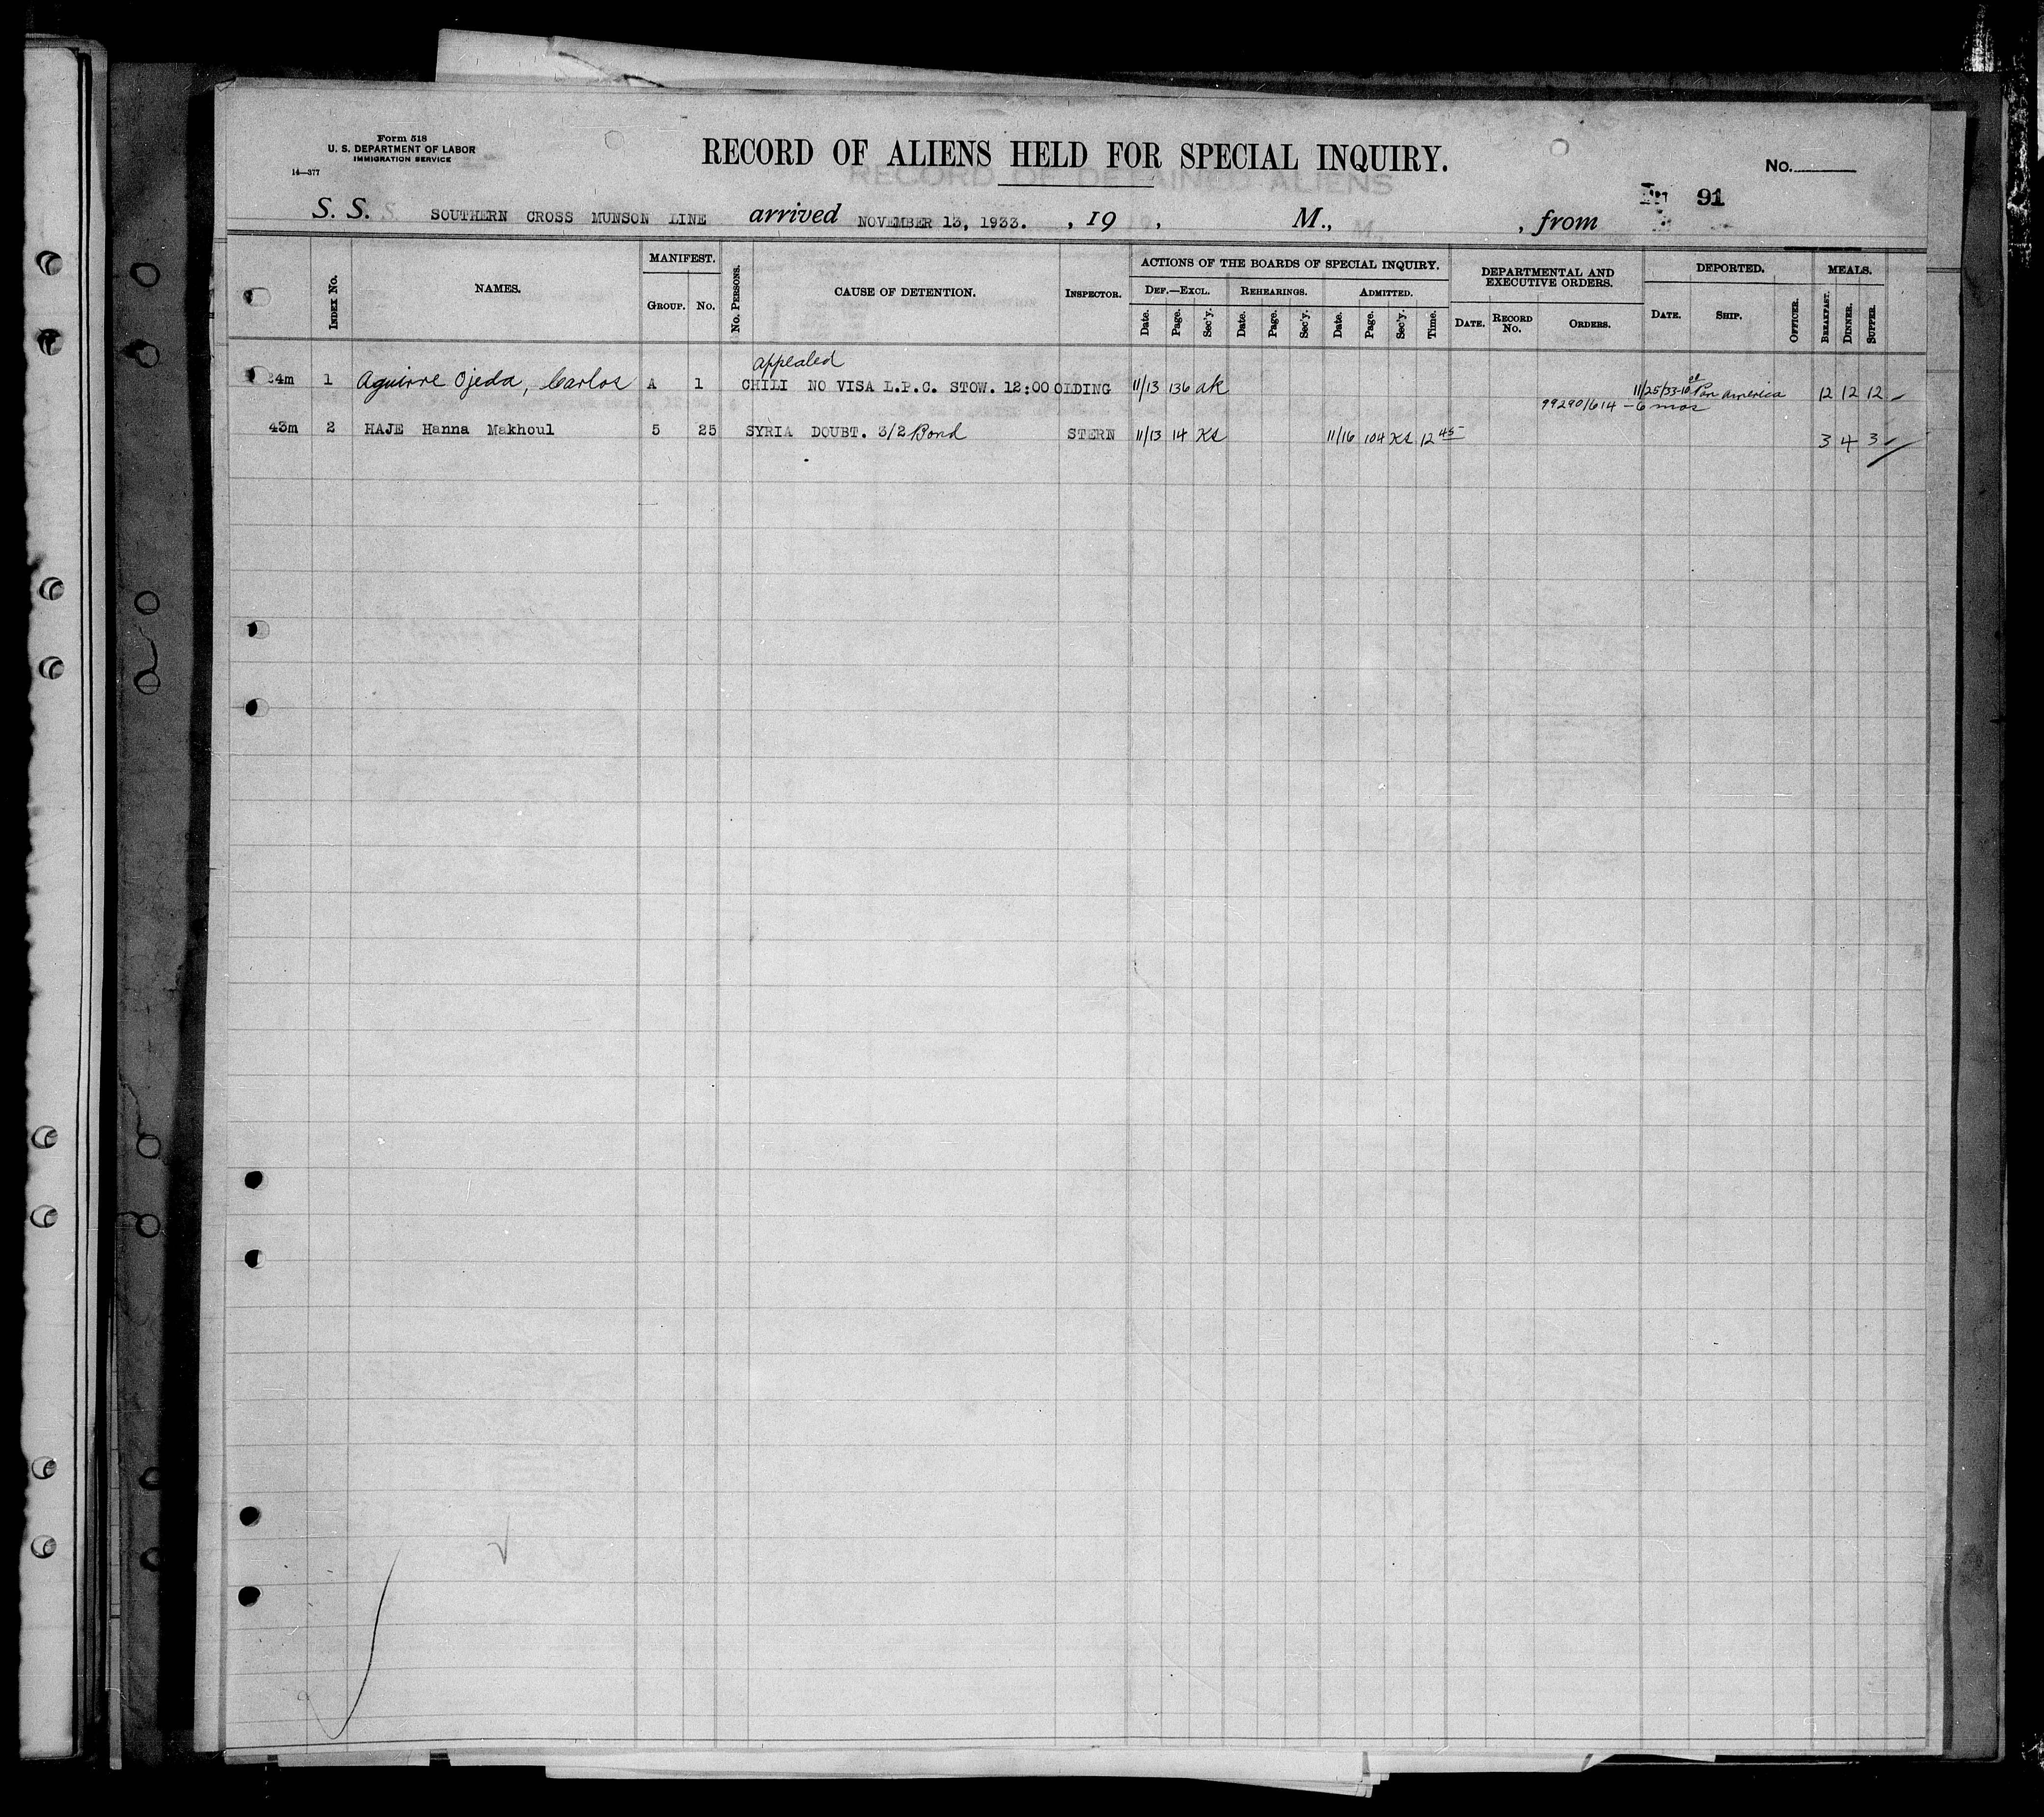 Form 518
U. S. DEPARTMENT OF LABOR
IMMIGRATION SERVICE
14—377
RECORD OF ALIENS HELD FOR SPECIAL INQUIRY.
RECORD OF DETAINED ALIENS
No.
91
S. S. SOUTHERN CROSS MUNSON LINE arrived NOVEMBER 13, 1933. , 19 , M., , from
INDEX No. NAMES. MANIFEST. GROUP. No. No. PERSONS. CAUSE OF DETENTION. INSPECTOR. ACTIONS OF THE BOARDS OF SPECIAL INQUIRY. DEPARTMENTAL AND EXECUTIVE ORDERS. DEPORTED. MEALS.
DEF.—EXCL. REHEARINGS. ADMITTED.
Date. Page. Sec'y. Date. Page. Sec'y. Date. Page. Sec'y. Time. DATE. RECORD No. ORDERS. DATE. SHIP. OFFICER. BREAKFAST. DINNER. SUPPER.
appealed
24m 1 Aguirre Ojeda, Carlos A 1 CHILI NO VISA L.P.C. STOW. 12:00 OLDING 11/13 136 AK 11/25/33 Pan America 12 12 12
99290/614 - 6 mos
43m 2 HAJE Hanna Makhoul 5 25 SYRIA DOUBT. 3/2 Bond STERN 11/13 14 KS 11/16 104 KS 12 45 3 4 3